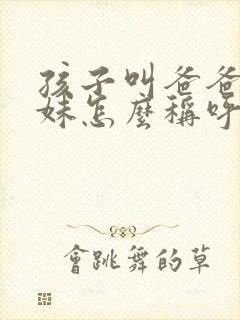 孩子叫爸爸
妹怎麼稱呼
會跳舞的草